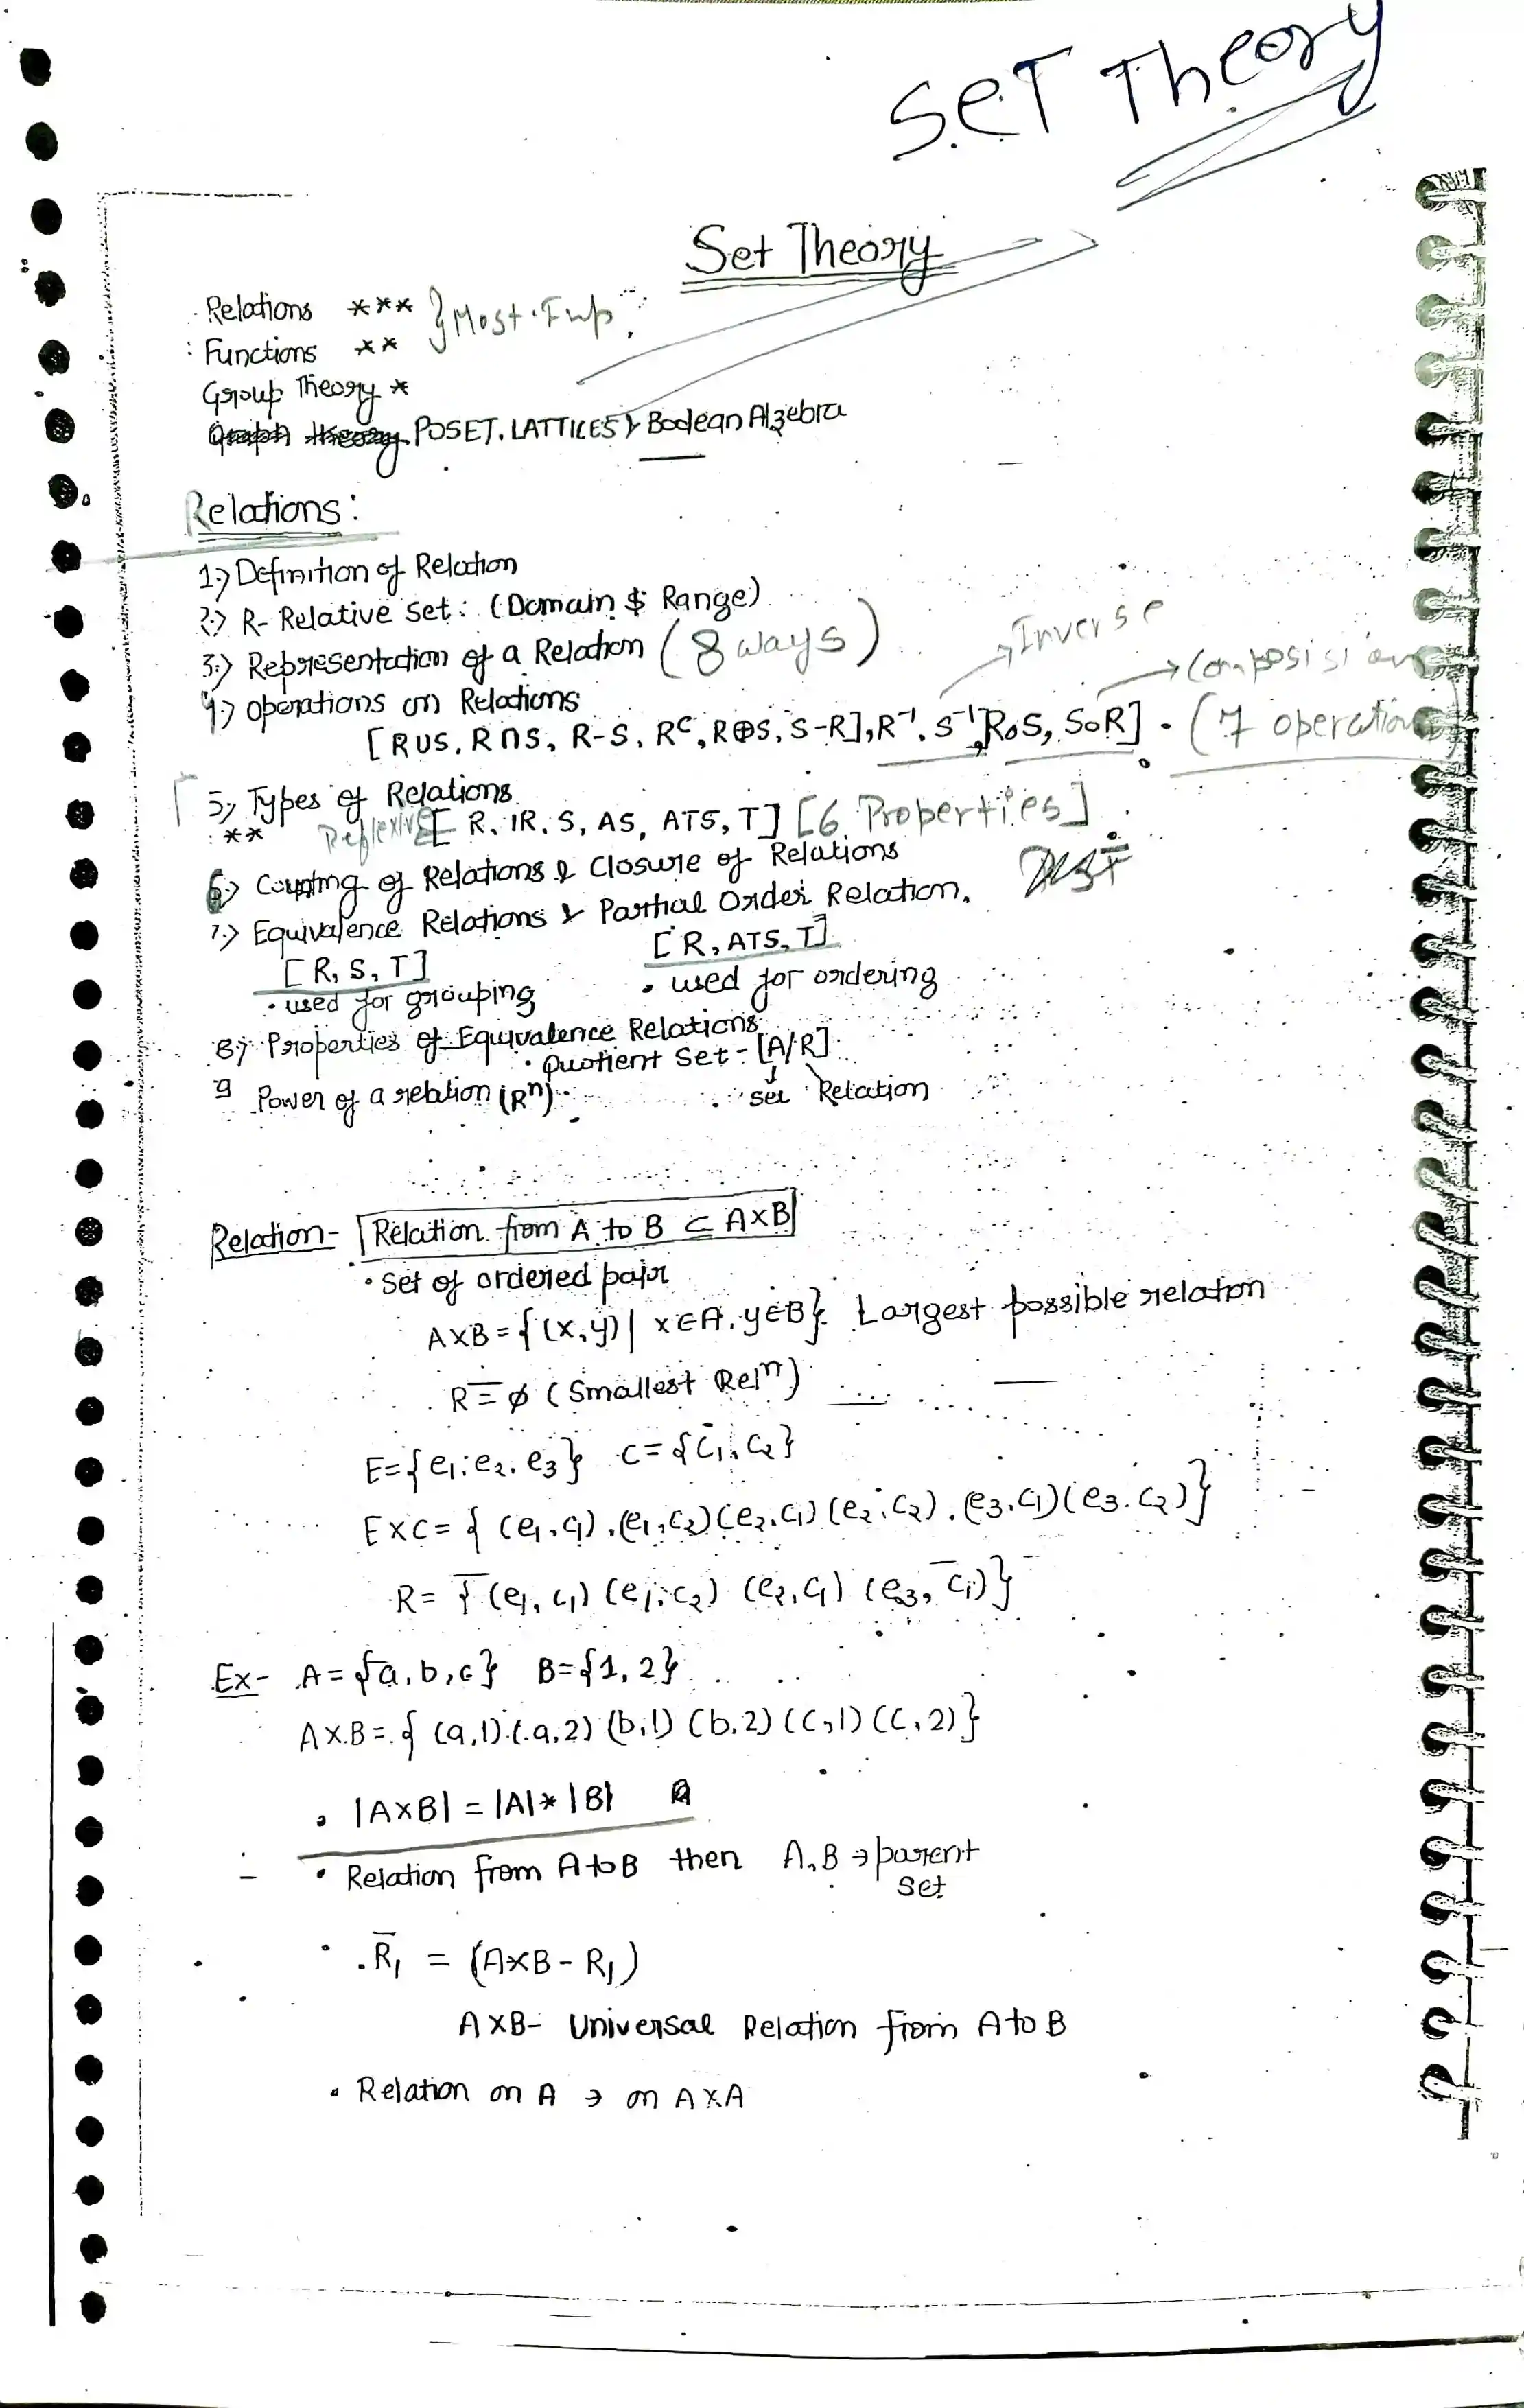 SET Theory
Set Theory
Relations *** } Most Imp
Functions **
Group Theory *
Graph theory POSET, LATTICES & Boolean Algebra
Relations:
1.) Definition of Relation
2.) R- Relative set: (Domain $ Range)
3.) Representation of a Relation (8 ways)
4.) operations on Relations
→ Inverse
→ Composision
[R∪S, R∩S, R-S, Rᶜ, R⊕S, S-R], R⁻¹, S⁻¹, RoS, SoR] - (7 operation
5.) Types of Relations
** Reflexive [R, IR, S, AS, ATS, T] [6 Properties]
6.) Counting of Relations & Closure of Relations
7.) Equivalence Relations & Partial Order Relation.
[R, S, T] [R, ATS, T]
• used for grouping • used for ordering
8) Properties of Equivalence Relations
• Quotient Set - [A/R]
set Relation
9 Power of a relation (Rⁿ)
Relation- Relation from A to B ⊆ A×B
• Set of ordered pair
A×B = {(x,y) | x∈A, y∈B} Largest possible relation
R = ϕ (Smallest Relⁿ)
E={e₁,e₂,e₃} C={C₁,C₂}
E×C= { (e₁,c₁),(e₁,c₂)(e₂,c₁)(e₂,c₂),(e₃,c₁)(e₃,c₂)}
R= {(e₁,c₁)(e₁,c₂) (e₂,c₁) (e₃,c₁)}
Ex- A={a,b,c} B={1,2}
A×B={ (a,1)(a,2)(b,1)(b,2)(c,1)(c,2)}
• |A×B| = |A|*|B|
• Relation from A to B then A,B → parent
set
• R̅₁ = (A×B - R₁)
A×B- Universal Relation from A to B
• Relation on A → on A×A